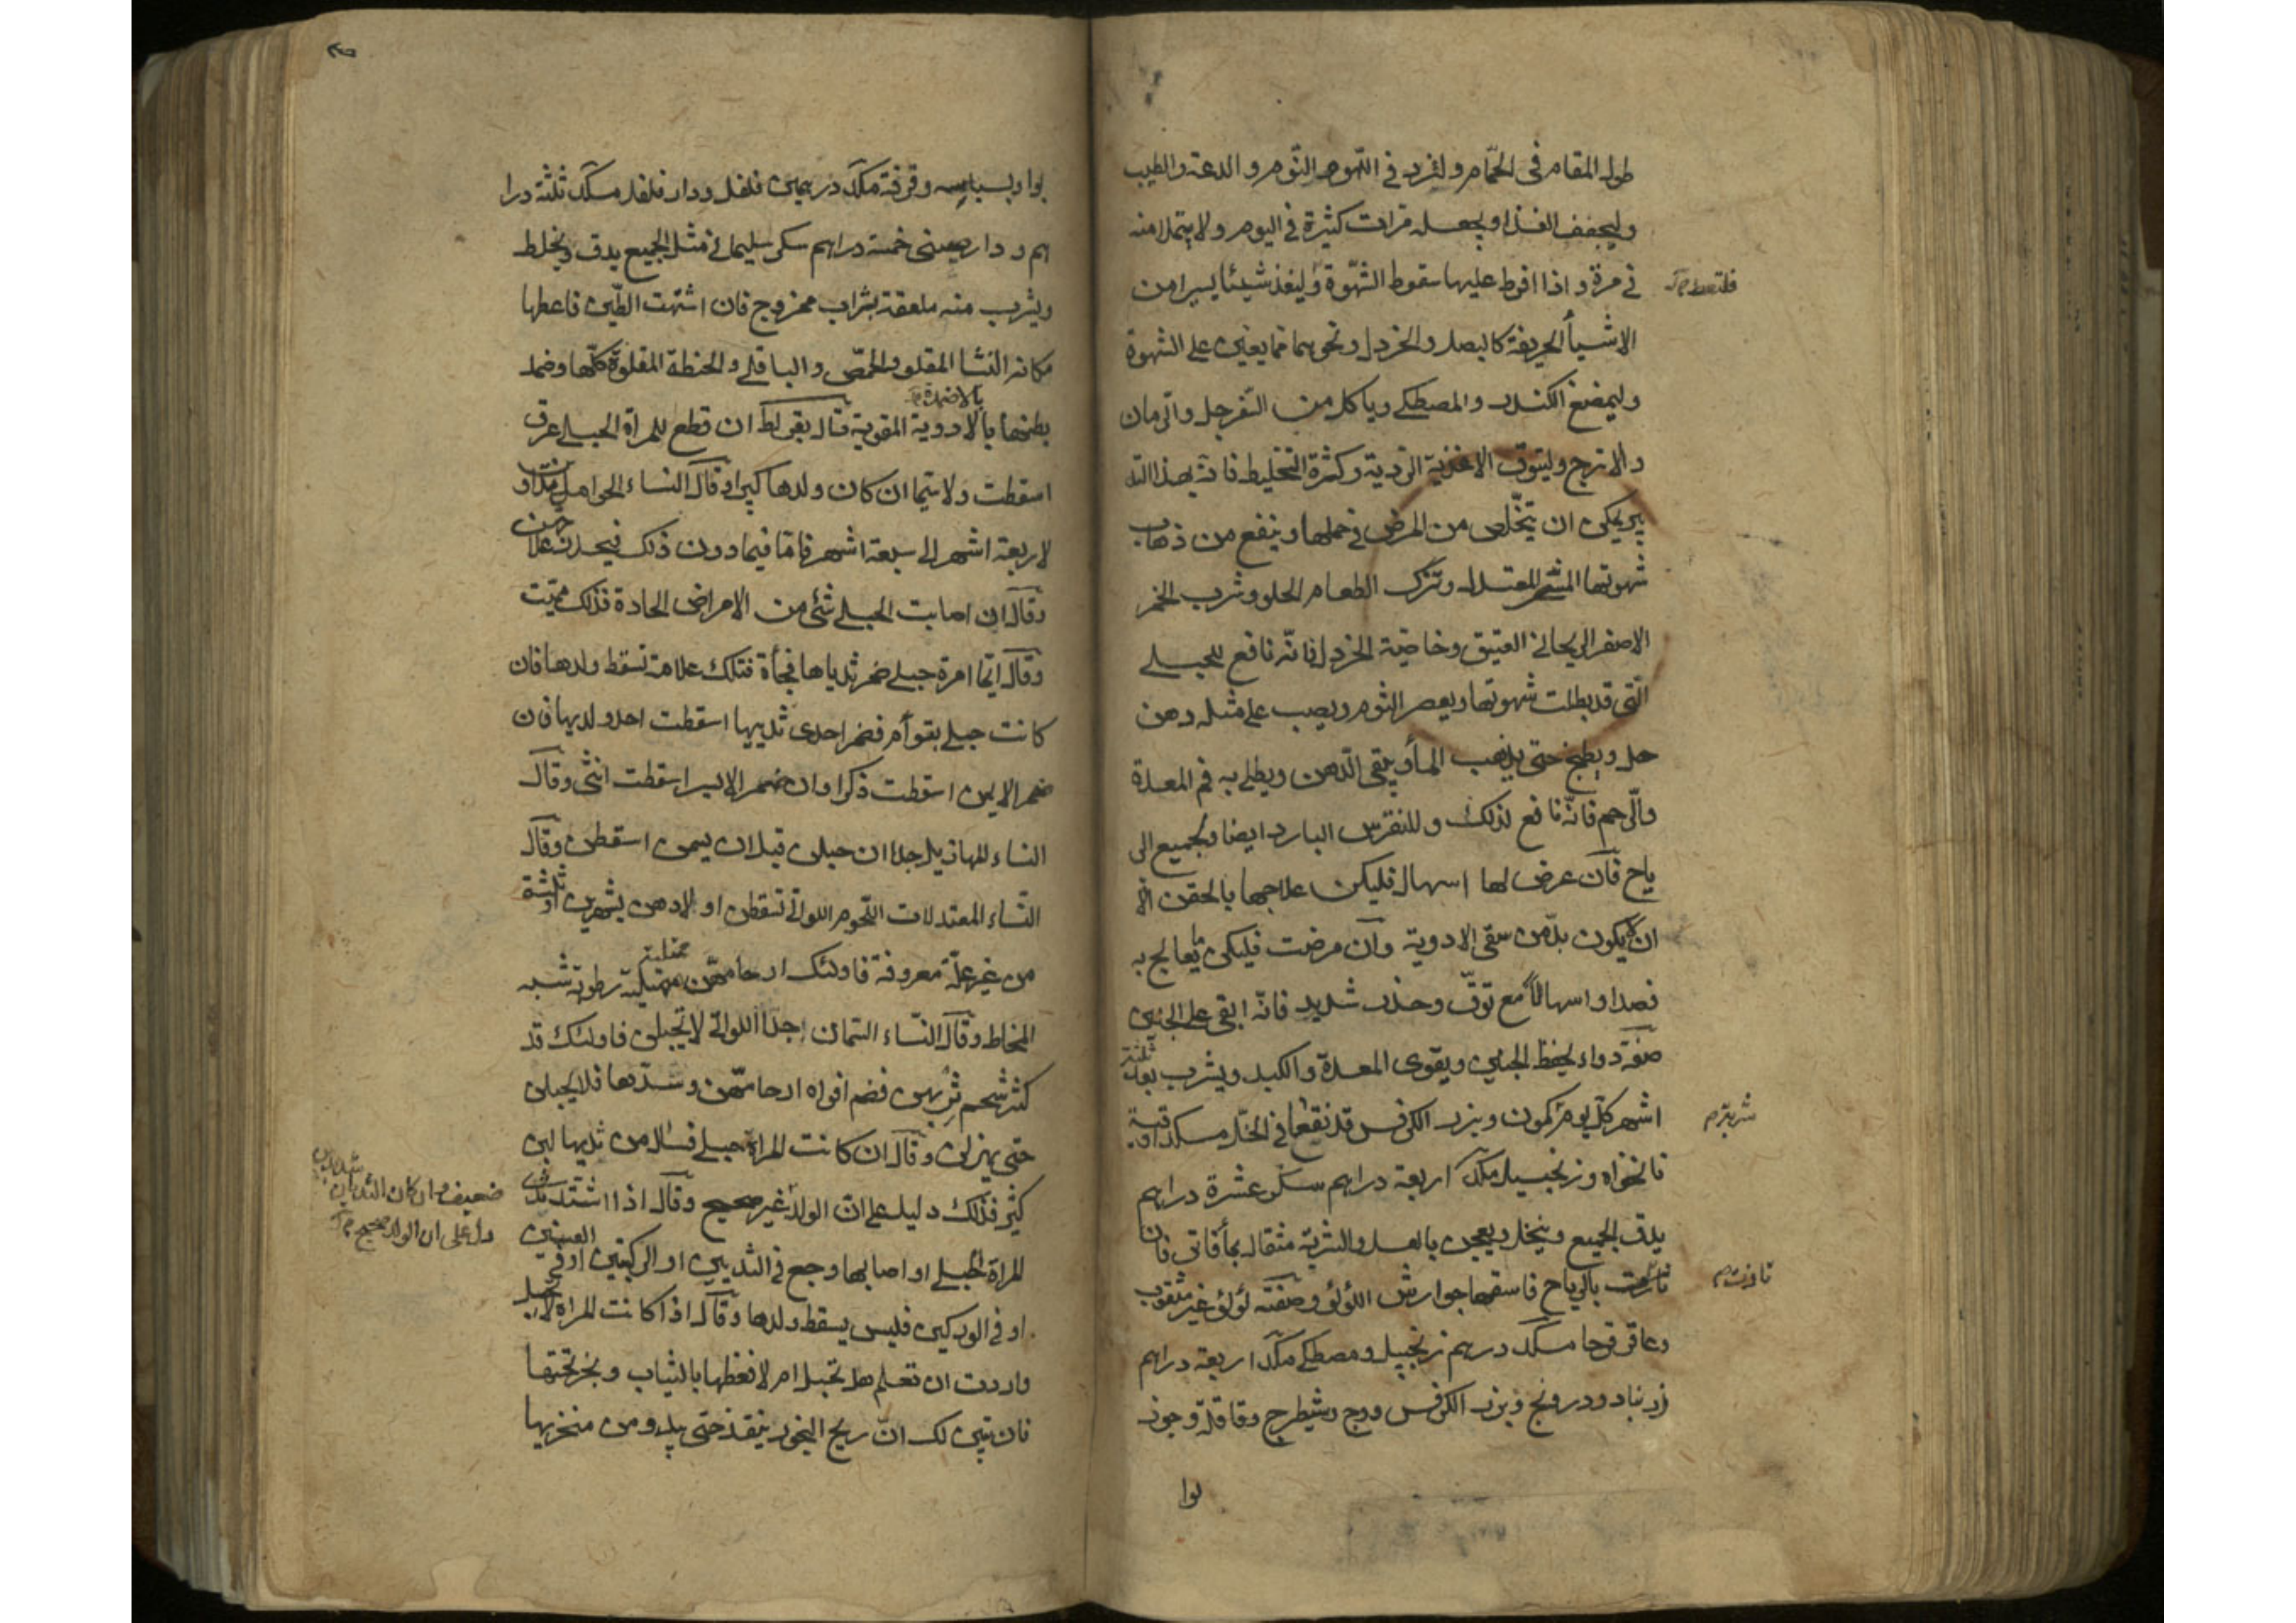 طول المقام فى الحمّام وليزد فى النوم والدعة والطيب
وليجفف الغذا ويجعله مرات كثيرة فى اليوم ولا يتملا منه
فى مرة و اذا افرط عليها سقوط الشهوة وليغذ شيئا يسيرا من
الاشيأ الحريفة كالبصل والخردل ونحوهما مما يعين على الشهوة
وليمضغ الكندر والمصطكى وياكل من السفرجل والرمان
والاترج وليتوق الاغذية الردية وكثرة التخليط فانه بهذا التد
بير يمكن ان يتخلص من المرض فى حملها وينفع من ذهاب
شهوتها المشى المعتدل وترك الطعام الحلو وشرب الخمر
الاصفر الريحانى العتيق وخاصية الخردل فانّه نافع للحبلى
الّتى قد بطلت شهوتها ويعصر الثوم ويصب على مثله دهن
حل ويطبخ حتى يذهب المأ ويبقى الدهن ويطلى به فم المعدة
والرحم فانّه نافع لذلك وللنقرس البارد ايضا ولجميع الر
ياح فان عرض لها اسهال فليكن علاجها بالحقن الّا
ان يكون بدّ من سقى الادوية وان مرضت فليكن ما يعالج به
فصدا او اسهالا مع توقّ وحذر شديد فانّه ابقى على الجنين
صفة دواء يحفظ الجنين ويقوى المعدة والكبد ويشرب بعد ثلثة
اشهر كلّ يوم كمون وبزر الكرفس قد نقعا فى الخل مسكد اوقية
نانخواه وزنجبيل مكد اربعة دراهم سكر عشرة دراهم
يدق الجميع وينخل ويعجن بالعسل والشربة مثقال بمأ فاتر فان
تاذت بالرياح فاسقها جوارش اللؤلؤ وصفته لؤلؤ غير مثقوب
وعاقرقرحا مسكد درهم زنجبيل ومصطكى مكد اربعة دراهم
زرنباد ودرونج وبزر الكرفس ووج وشيطرج وقاقلة وجوز
بوا
شربة م
تاذت م
بوا وبسباسه وقرفة مكد درهمين فلفل ودار فلفل مسكد ثلثة درا
هم و دارصينى خمسة دراهم سكر سليمانى مثل الجميع يدق ويخلط
ويشرب منه ملعقة بشراب ممزوج فان اشتهت الطين فاعطها
مكانه النشا المقلو والحمّص والباقلى والحنطة المقلوة كلّها وضمد
بالاضمدة
بطنها بالادوية المقوية قال بقراط ان قطع للمراة الحبلى عرق
اسقطت ولا سيّما ان كان ولدها كبيرا وقال النساء الحوامل
لاربعة اشهر الى سبعة اشهر فامّا فيما دون ذلك
وقال ان اصابت الحبلى شئ من الامراض الحادة فذلك مميت
وقال ايّما امرة حبلى ضمر ثدياها فجأة فتلك علامة تسقط ولدها فان
كانت حبلى بتوأم فضمر احدى ثدييها اسقطت احد ولديها فان
ضمر الايمن اسقطت ذكرا وان ضمر الايسر اسقطت انثى وقال
النساء المهازيل جدا ان حبلن قبل ان يسمن اسقطن وقال
النّساء المعتدلات اللحوم اللواتى تسقطن اولادهن بشهرين او ثلثة
من غير علّة معروفة فاولئك ارحامهن ممتلية رطوبة شبه
المخاط وقال النّساء السّمان جدا اللواتى لا تحبلن فاولئك قد
كثر شحم ثربهن فضم افواه ارحامهن وسدّها فلا يحبلن
حتى يهزلن وقال ان كانت المراة حبلى فسال من ثدييها لبن
كثير فذلك دليل على ان الولد غير صحيح وقال اذا اشتد
المراة الحبلى او اصابها وجع فى الثديين او الركبتين او فى العينين
او فى الوركين فليس يسقط ولدها وقال اذا كانت المراة لا تحبل
واردت ان تعلم هل تحبل ام لا فغطها بالثياب وبخر تحتها
فان تبين لك انّ ريح البخور ينفذ حتى يبدو من منخريها
ضعيف وان كان الثديان شديدين
دل على ان الولد صحيح